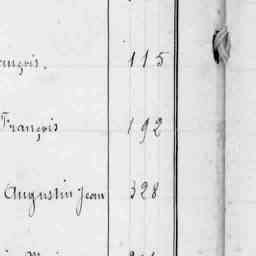 ançois. 115
François 192
Augustin Jean 328